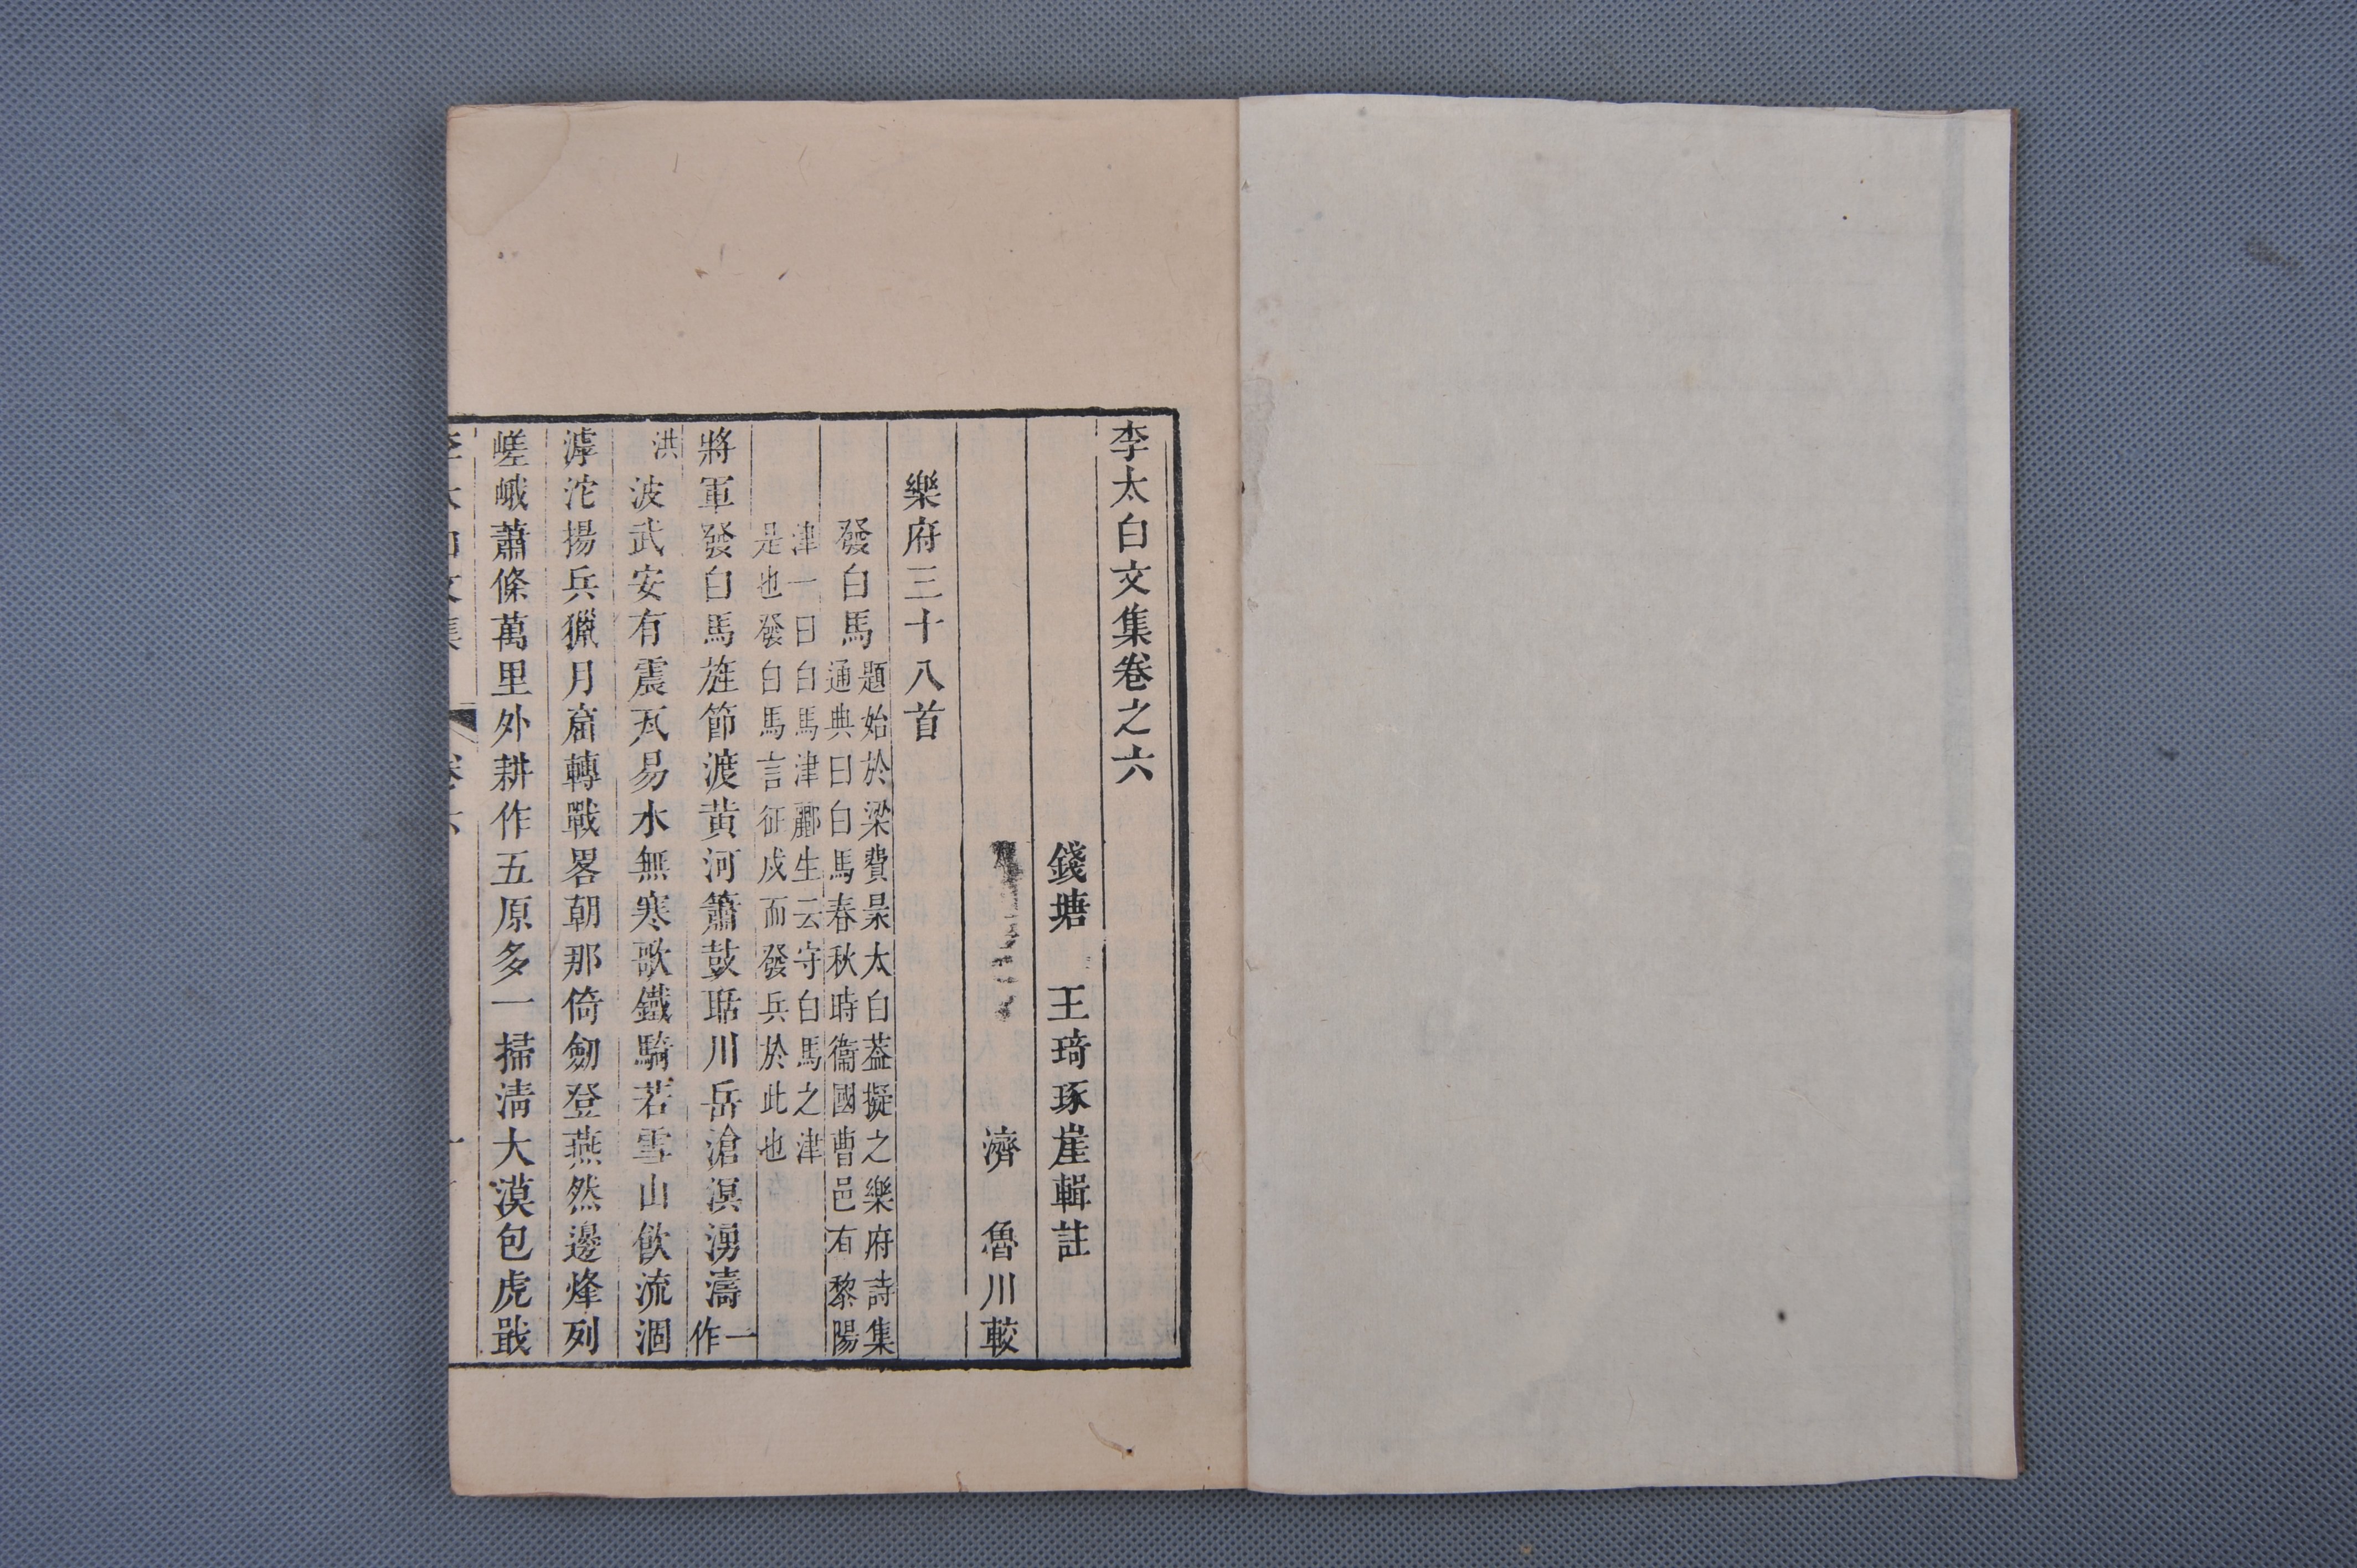 李太白文集卷之六
錢塘 王琦琢崖輯註
濟 魯川較
樂府三十八首
發白馬 題始於梁費昶太白葢擬之樂府詩集
通典曰白馬春秋時衞國曹邑有黎陽
津一曰白馬津酈生云守白馬之津
是也發白馬言征戍而發兵於此也
將軍發白馬旌節渡黄河簫鼓聒川岳滄溟湧濤 一作
洪波武安有震瓦易水無寒歌鐵騎若雪山飲流涸
滹沱揚兵獵月窟轉戰畧朝那倚劒登燕然邊烽列
嵯峨蕭條萬里外耕作五原多一掃清大漠包虎戢